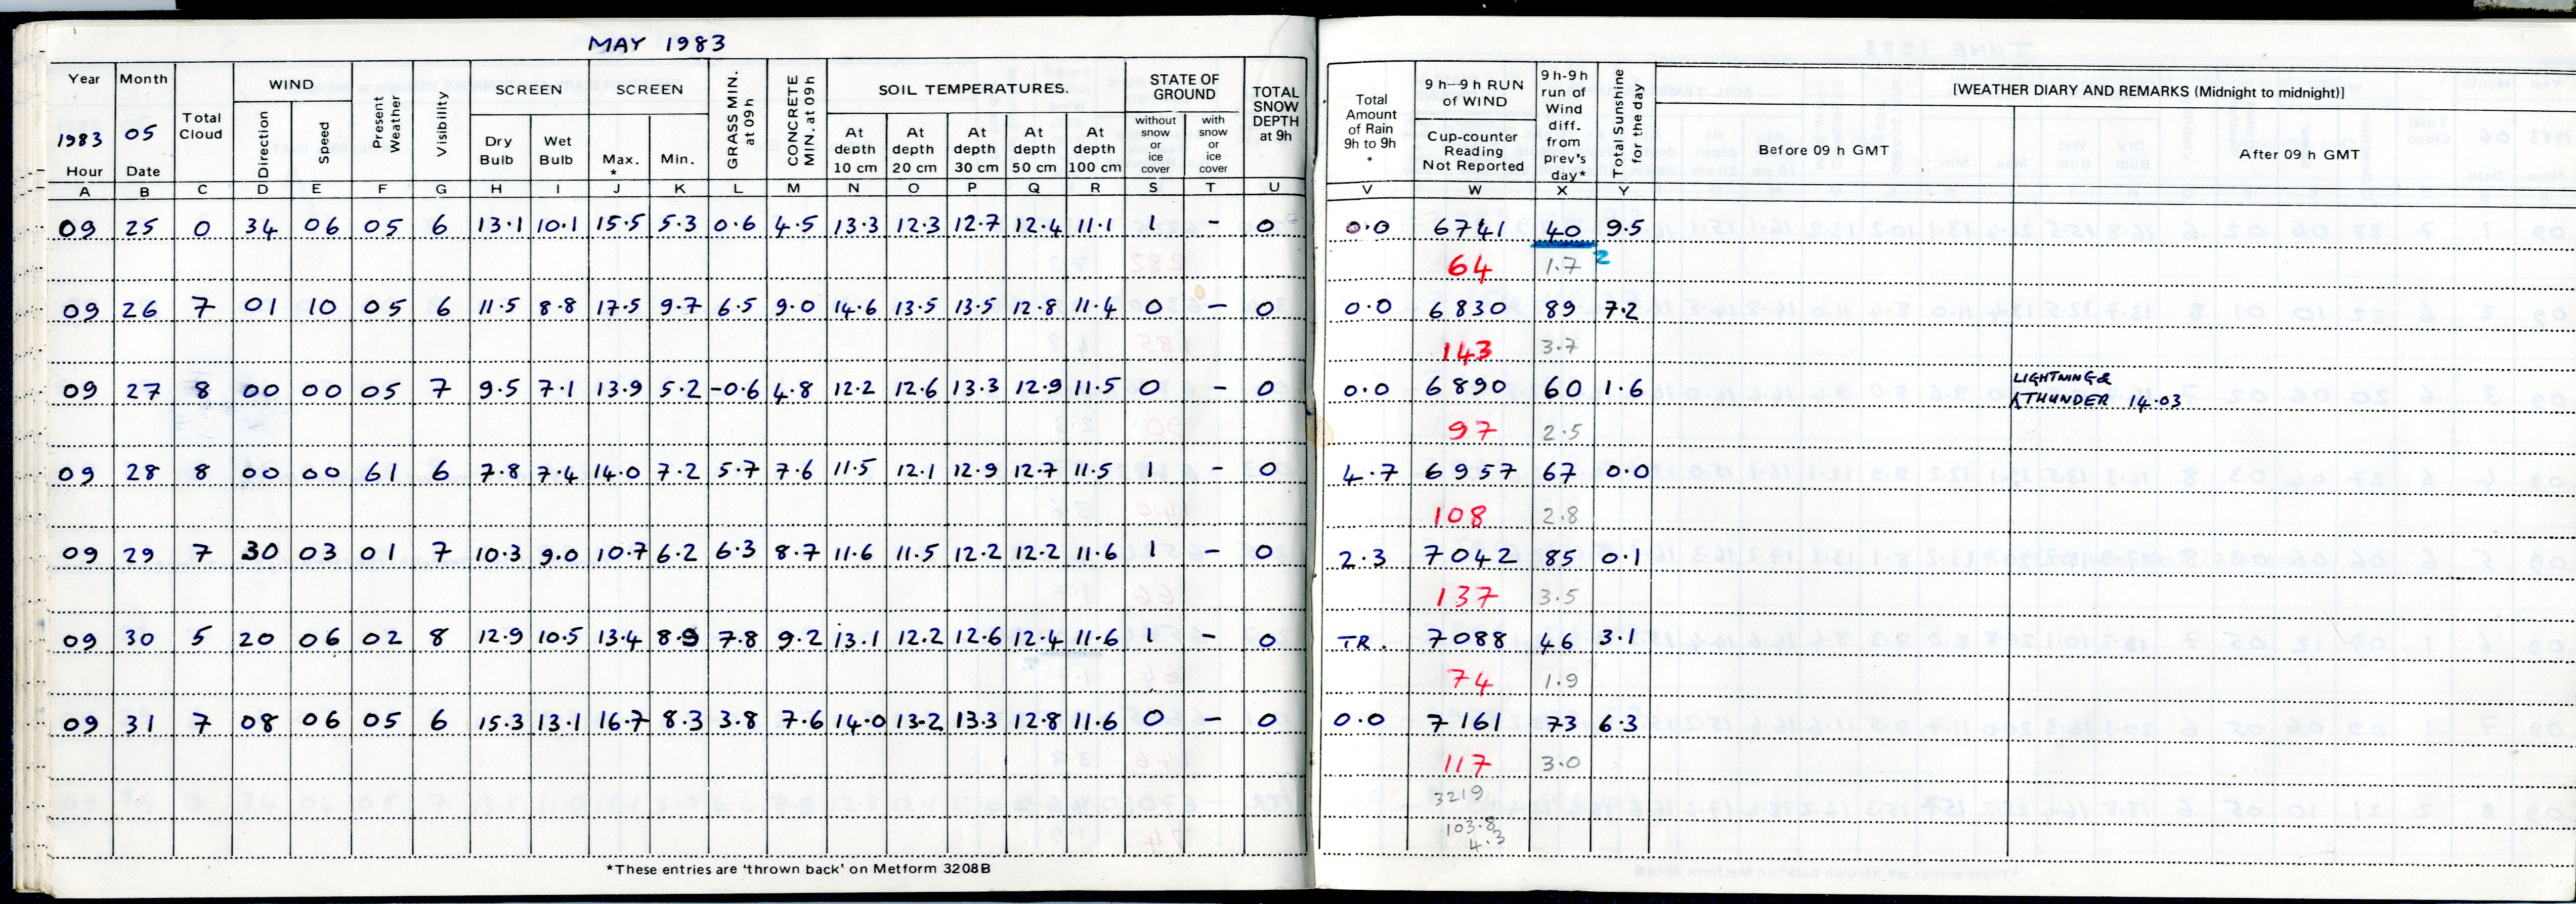 MAY 1983
Year Month Total Cloud WIND Present Weather Visibility SCREEN SCREEN GRASS MIN. at 09h CONCRETE MIN. at 09h SOIL TEMPERATURES. STATE OF GROUND TOTAL SNOW DEPTH at 9h Total Amount of Rain 9h to 9h * 9 h—9 h RUN of WIND 9 h-9 h run of Wind diff- from prev's day* Total Sunshine for the day [WEATHER DIARY AND REMARKS (Midnight to midnight)]
1983 05 Direction Speed Dry Bulb Wet Bulb Max. * Min. At depth 10 cm At depth 20 cm At depth 30 cm At depth 50 cm At depth 100 cm without snow or ice cover with snow or ice cover Cup-counter Reading Not Reported Before 09 h GMT After 09 h GMT
Hour Date
A B C D E F G H I J K L M N O P Q R S T U V W X Y
09 25 0 34 06 05 6 13.1 10.1 15.5 5.3 0.6 4.5 13.3 12.3 12.7 12.4 11.1 1 - 0 0.0 6741 40 9.5
64 1.7 2
09 26 7 01 10 05 6 11.5 8.8 17.5 9.7 6.5 9.0 14.6 13.5 13.5 12.8 11.4 0 - 0 0.0 6830 89 7.2
143 3.7
09 27 8 00 00 05 7 9.5 7.1 13.9 5.2 -0.6 4.8 12.2 12.6 13.3 12.9 11.5 0 - 0 0.0 6890 60 1.6 LIGHTNING &
THUNDER 14.03
97 2.5
09 28 8 00 00 61 6 7.8 7.4 14.0 7.2 5.7 7.6 11.5 12.1 12.9 12.7 11.5 1 - 0 4.7 6957 67 0.0
108 2.8
09 29 7 30 03 01 7 10.3 9.0 10.7 6.2 6.3 8.7 11.6 11.5 12.2 12.2 11.6 1 - 0 2.3 7042 85 0.1
137 3.5
09 30 5 20 06 02 8 12.9 10.5 13.4 8.9 7.8 9.2 13.1 12.2 12.6 12.4 11.6 1 - 0 TR. 7088 46 3.1
74 1.9
09 31 7 08 06 05 6 15.3 13.1 16.7 8.3 3.8 7.6 14.0 13.2 13.3 12.8 11.6 0 - 0 0.0 7161 73 6.3
117 3.0
3219
103.8
4.3
*These entries are 'thrown back' on Metform 3208B